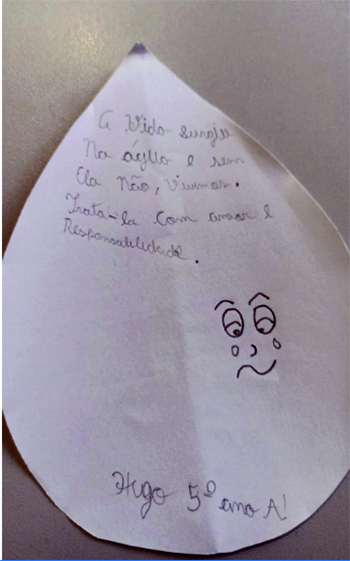 A Vida surgiu
Na água e sem
Ela Não, Vivemos.
Trata-la com amor e
Responsabilidade.
Higo 5º ano A!